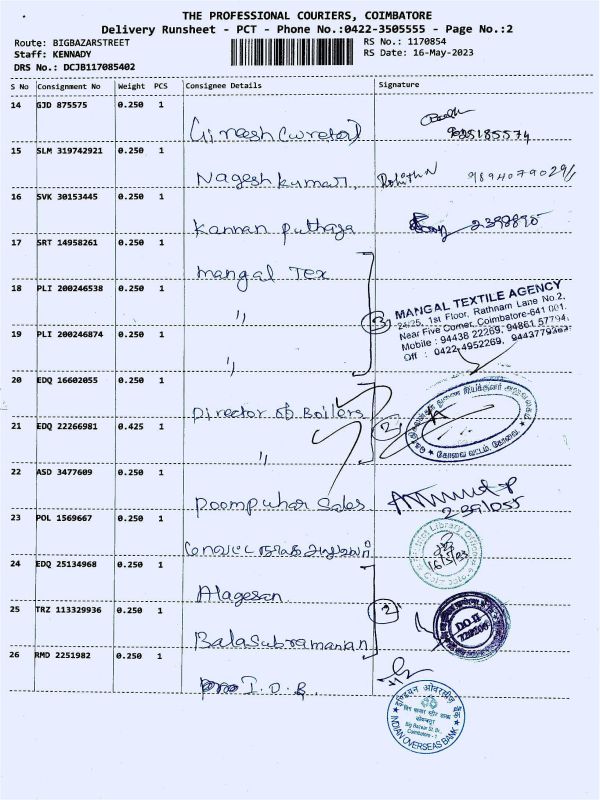 THE PROFESSIONAL COURIERS, COIMBATORE
Delivery Runsheet - PCT - Phone No.:0422-3505555 - Page No.:2
Route: BIGBAZARSTREET RS No.: 1170854
Staff: KENNADY RS Date: 16-May-2023
DRS No.: DCJB117085402
S No Consignment No Weight PCS Consignee Details Signature
14 GJD 875575 0.250 1
15 SLM 319742921 0.250 1
Nagesh kumar, Rohith N
16 SVK 30153445 0.250 1
Kannan puthaga 2398890
17 SRT 14958261 0.250 1
Mangal Tex
18 PLI 200246538 0.250 1
"
3
MANGAL TEXTILE AGENCY
24/25, 1st Floor, Rathnam Lane No.2,
Near Five Corner, Coimbatore-641 001.
Mobile : 94438 22269, 94861 57794,
Off : 0422-4952269,
19 PLI 200246874 0.250 1
"
20 EDQ 16602055 0.250 1
Director of Boilers
21 EDQ 22266981 0.425 1
2
"
22 ASD 3477609 0.250 1
Poompuhar Sales
2391055
23 POL 1569667 0.250 1
16/5/23
24 EDQ 25134968 0.250 1
Alagesan
25 TRZ 113329936 0.250 1
2
D.O.II
BalaSubramanian
26 RMD 2251982 0.250 1
I.O.B.
इण्डियन ओवरसीज़ बैंक
Big Bazaar St. Br.
Coimbatore - 1
INDIAN OVERSEAS BANK